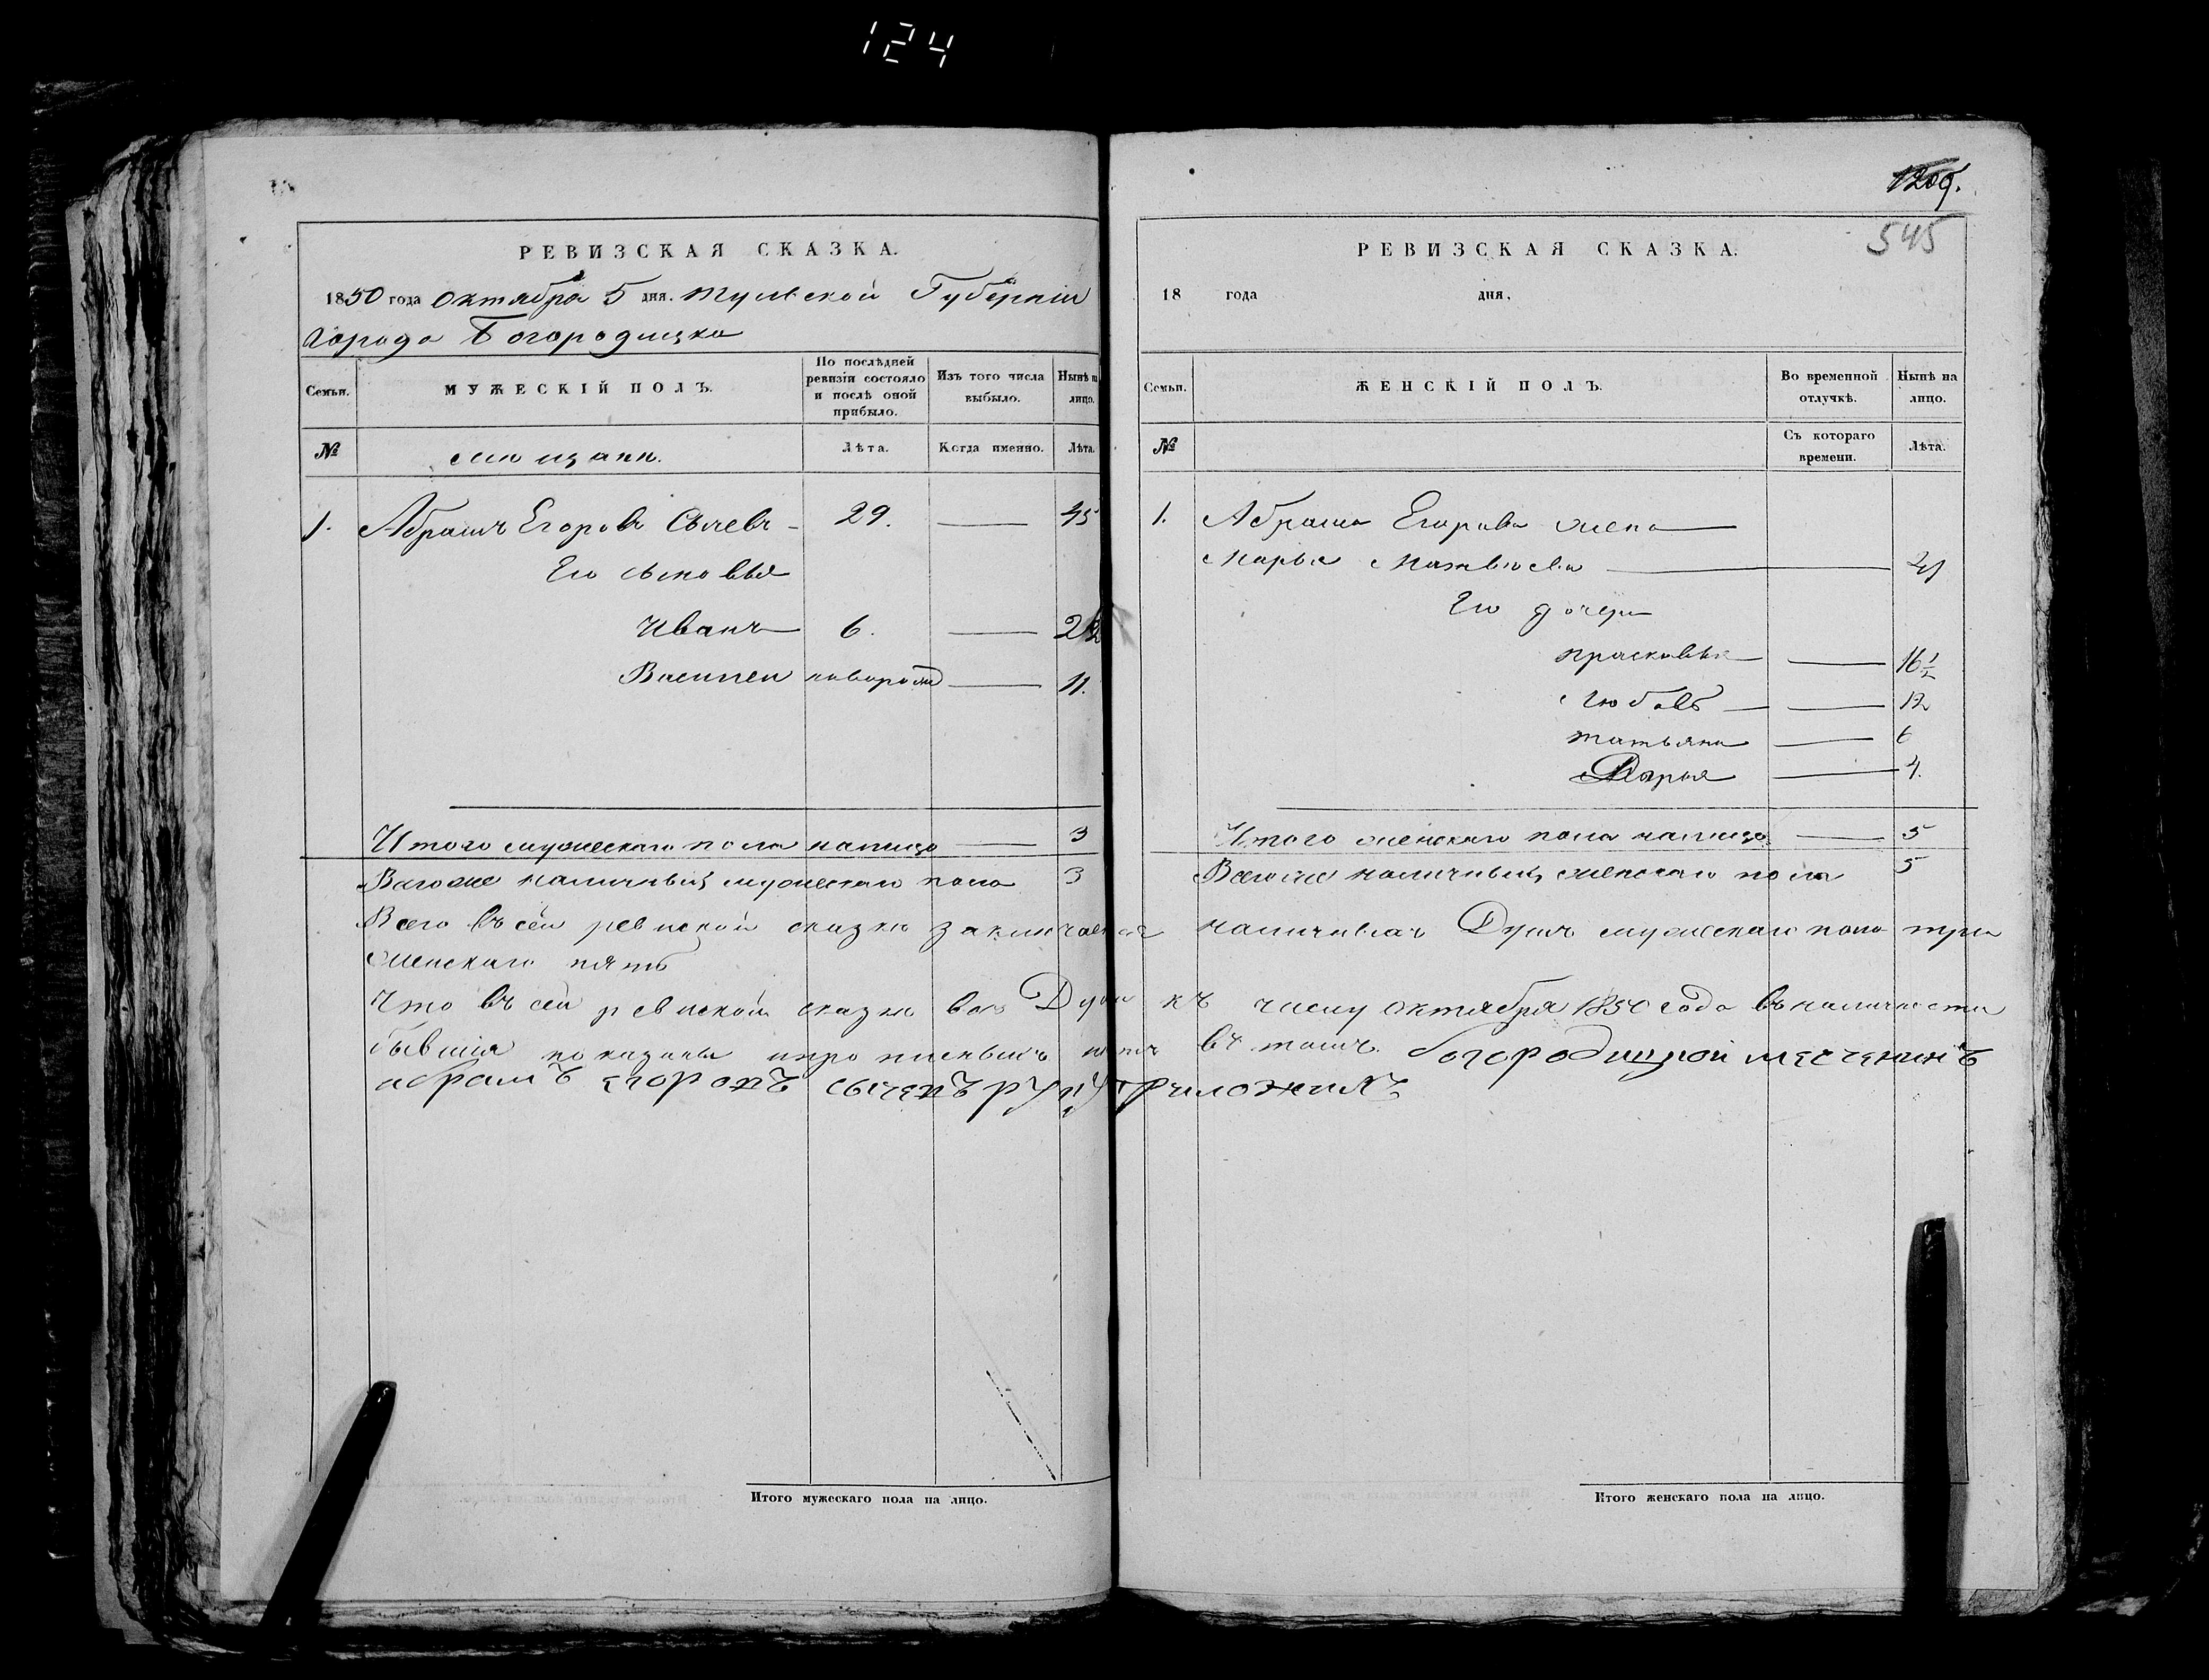 124
РЕВИЗСКАЯ СКАЗКА.
1850 года Октября 5 дня. Тульской Губернiи
Города Богородицка
Семьи.
МУЖЕСКIЙ ПОЛЪ.
По послѣдней ревизiи состояло и послѣ оной прибыло.
Изъ того числа выбыло.
Нынѣ на лицо.
№
мѣщанн.
Лѣта.
Когда именно.
Лѣта.
1. Абрамъ Егоровъ Сычевъ 29. 45
Его сыновья
Иванъ 6.
Василей новорожд 11.
Итого мужескаго пола налицо 3
Всегоже наличныхъ мужескаго пола 3
1209.
545
РЕВИЗСКАЯ СКАЗКА.
18 года дня.
Семьи.
ЖЕНСКIЙ ПОЛЪ.
Во временной отлучкѣ.
Нынѣ на лицо.
№
Съ котораго времени.
Лѣта.
1. Абрама Егорова жена
Марья Матвѣева
Его дочери
Прасковья 16 1/2
Любовь 12
Татьяна 6
Дарья 4.
Итого женскаго пола налицо 5
Всегоже наличныхъ женскаго пола 5
Всего въ сей ревиской сказкѣ заключается наличныхъ Душъ мужескаго пола три
женскаго пять
Что въ сей ревиской сказкѣ всѣ Души къ числу октября 1850 года въ наличности
бывшiя показаны и прописныхъ нѣтъ въ томъ богородицкой месченинъ
абрамъ егоровъ сычевъ руку приложилъ
Итого мужескаго пола на лицо.
Итого женскаго пола на лицо.